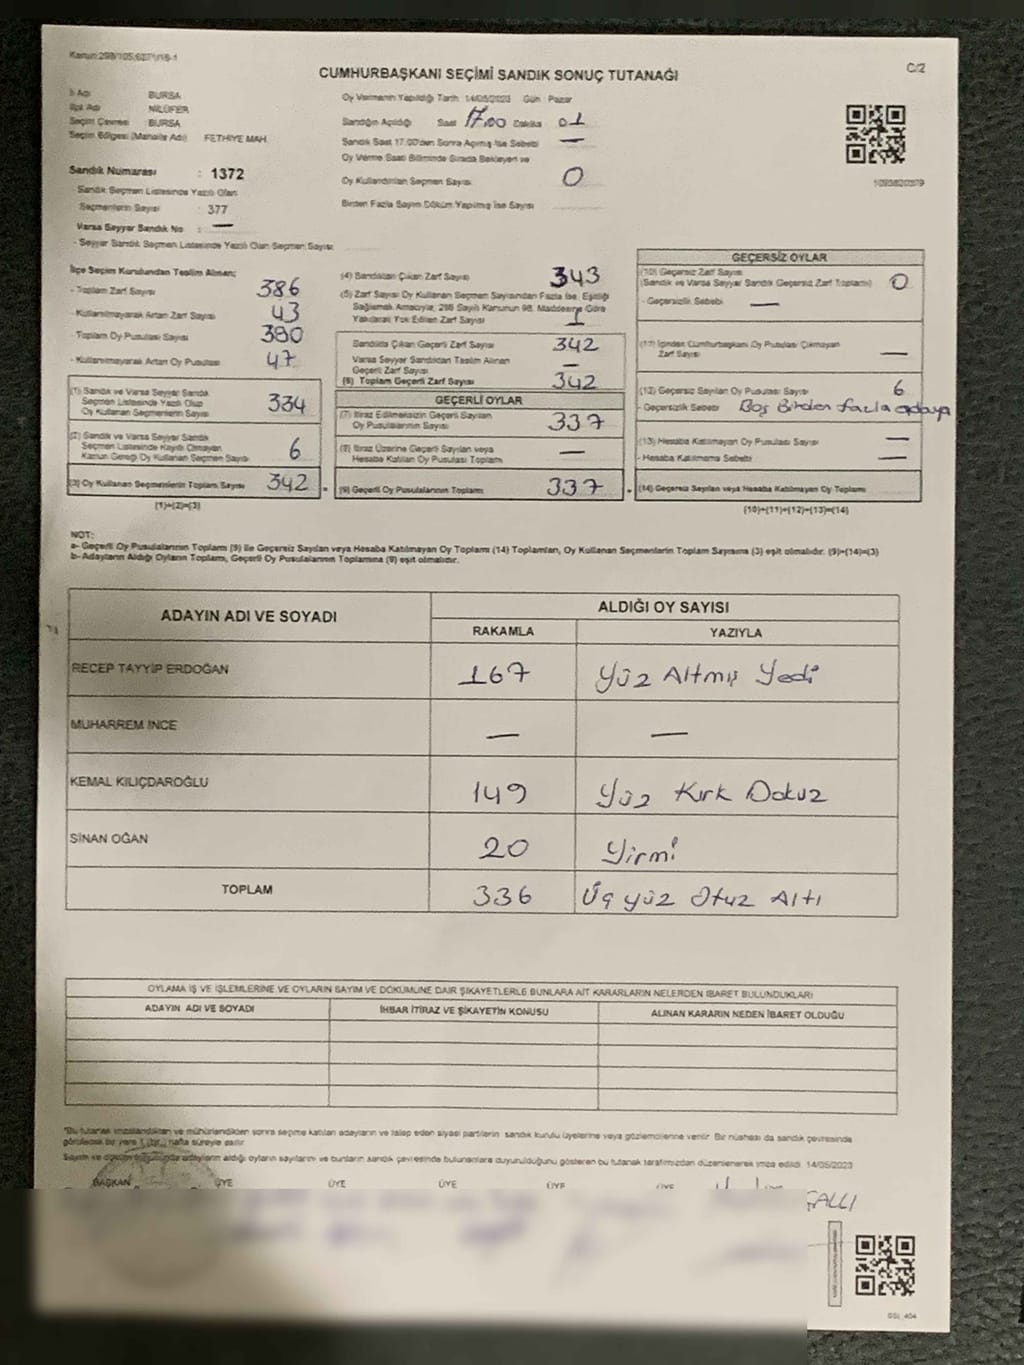 Kanun:298/105;6271/16-1
C/2
CUMHURBAŞKANI SEÇİMİ SANDIK SONUÇ TUTANAĞI
İl Adı BURSA
İlçe Adı NİLÜFER
Seçim Çevresi : BURSA
Seçim Bölgesi (Mahalle Adı) FETHİYE MAH.
Sandık Numarası : 1372
- Sandık Seçmen Listesinde Yazılı Olan
Seçmenlerin Sayısı : 377
Varsa Seyyar Sandık No : —
- Seyyar Sandık Seçmen Listesinde Yazılı Olan Seçmen Sayısı
Oy Vermenin Yapıldığı Tarih 14/05/2023 Gün : Pazar
Sandığın Açıldığı Saat 17.00 Dakika 01
Sandık Saat 17.00'den Sonra Açılmış İse Sebebi —
Oy Verme Saati Bitiminde Sırada Bekleyen ve
Oy Kullandırılan Seçmen Sayısı 0
Birden Fazla Sayım Döküm Yapılmış İse Sayısı
İlçe Seçim Kurulundan Teslim Alınan;
- Toplam Zarf Sayısı 386
- Kullanılmayarak Artan Zarf Sayısı 43
- Toplam Oy Pusulası Sayısı 390
- Kullanılmayarak Artan Oy Pusulası 47
(1) Sandık ve Varsa Seyyar Sandık
Seçmen Listesinde Yazılı Olup
Oy Kullanan Seçmenlerin Sayısı 334
(2) Sandık ve Varsa Seyyar Sandık
Seçmen Listesinde Kayıtlı Olmayan
Kanun Gereği Oy Kullanan Seçmen Sayısı 6
(3) Oy Kullanan Seçmenlerin Toplam Sayısı 342
(1)+(2)=(3)
(4) Sandıktan Çıkan Zarf Sayısı 343
(5) Zarf Sayısı Oy Kullanan Seçmen Sayısından Fazla İse, Eşitliği
Sağlamak Amacıyla, 298 Sayılı Kanunun 98. Maddesine Göre
Yakılarak Yok Edilen Zarf Sayısı 1
Sandıkta Çıkan Geçerli Zarf Sayısı 342
Varsa Seyyar Sandıktan Teslim Alınan
Geçerli Zarf Sayısı —
(6) Toplam Geçerli Zarf Sayısı 342
GEÇERLİ OYLAR
(7) İtiraz Edilmeksizin Geçerli Sayılan
Oy Pusulalarının Sayısı 337
(8) İtiraz Üzerine Geçerli Sayılan veya
Hesaba Katılan Oy Pusulası Toplamı —
(9) Geçerli Oy Pusulalarının Toplamı 337
GEÇERSİZ OYLAR
(10) Geçersiz Zarf Sayısı
(Sandık ve Varsa Seyyar Sandık Geçersiz Zarf Toplamı) 0
- Geçersizlik Sebebi —
(11) İçinden Cumhurbaşkanı Oy Pusulası Çıkmayan
Zarf Sayısı —
(12) Geçersiz Sayılan Oy Pusulası Sayısı 6
- Geçersizlik Sebebi Boş Birden fazla adaya
(13) Hesaba Katılmayan Oy Pusulası Sayısı —
- Hesaba Katılmama Sebebi —
(14) Geçersiz Sayılan veya Hesaba Katılmayan Oy Toplamı
(10)+(11)+(12)+(13)=(14)
NOT:
a- Geçerli Oy Pusulalarının Toplamı (9) ile Geçersiz Sayılan veya Hesaba Katılmayan Oy Toplamı (14) Toplamları, Oy Kullanan Seçmenlerin Toplam Sayısına (3) eşit olmalıdır. (9)+(14)=(3)
b- Adayların Aldığı Oyların Toplamı, Geçerli Oy Pusulalarının Toplamına (9) eşit olmalıdır.
ADAYIN ADI VE SOYADI
ALDIĞI OY SAYISI
RAKAMLA YAZIYLA
RECEP TAYYİP ERDOĞAN 167 Yüz Altmış Yedi
MUHARREM İNCE — —
KEMAL KILIÇDAROĞLU 149 Yüz Kırk Dokuz
SİNAN OĞAN 20 Yirmi
TOPLAM 336 Üç yüz Otuz Altı
OYLAMA İŞ VE İŞLEMLERİNE VE OYLARIN SAYIM VE DÖKÜMÜNE DAİR ŞİKAYETLERLE BUNLARA AİT KARARLARIN NELERDEN İBARET BULUNDUKLARI
ADAYIN ADI VE SOYADI İHBAR İTİRAZ VE ŞİKAYETİN KONUSU ALINAN KARARIN NEDEN İBARET OLDUĞU
*Bu tutanak imzalandıktan ve mühürlendikten sonra seçime katılan adayların ve talep eden siyasi partilerin sandık kurulu üyelerine veya gözlemcilerine verilir. Bir nüshası da sandık çevresinde
görülecek bir yere 1 (bir) hafta süreyle asılır.
Sayım ve döküm sonucunda adayların aldığı oyların sayılarını ve bunların sandık çevresinde bulunanlara duyurulduğunu gösteren bu tutanak tarafımızdan düzenlenerek imza edildi. 14/05/2023
BAŞKAN ÜYE ÜYE ÜYE ÜYE ÜYE